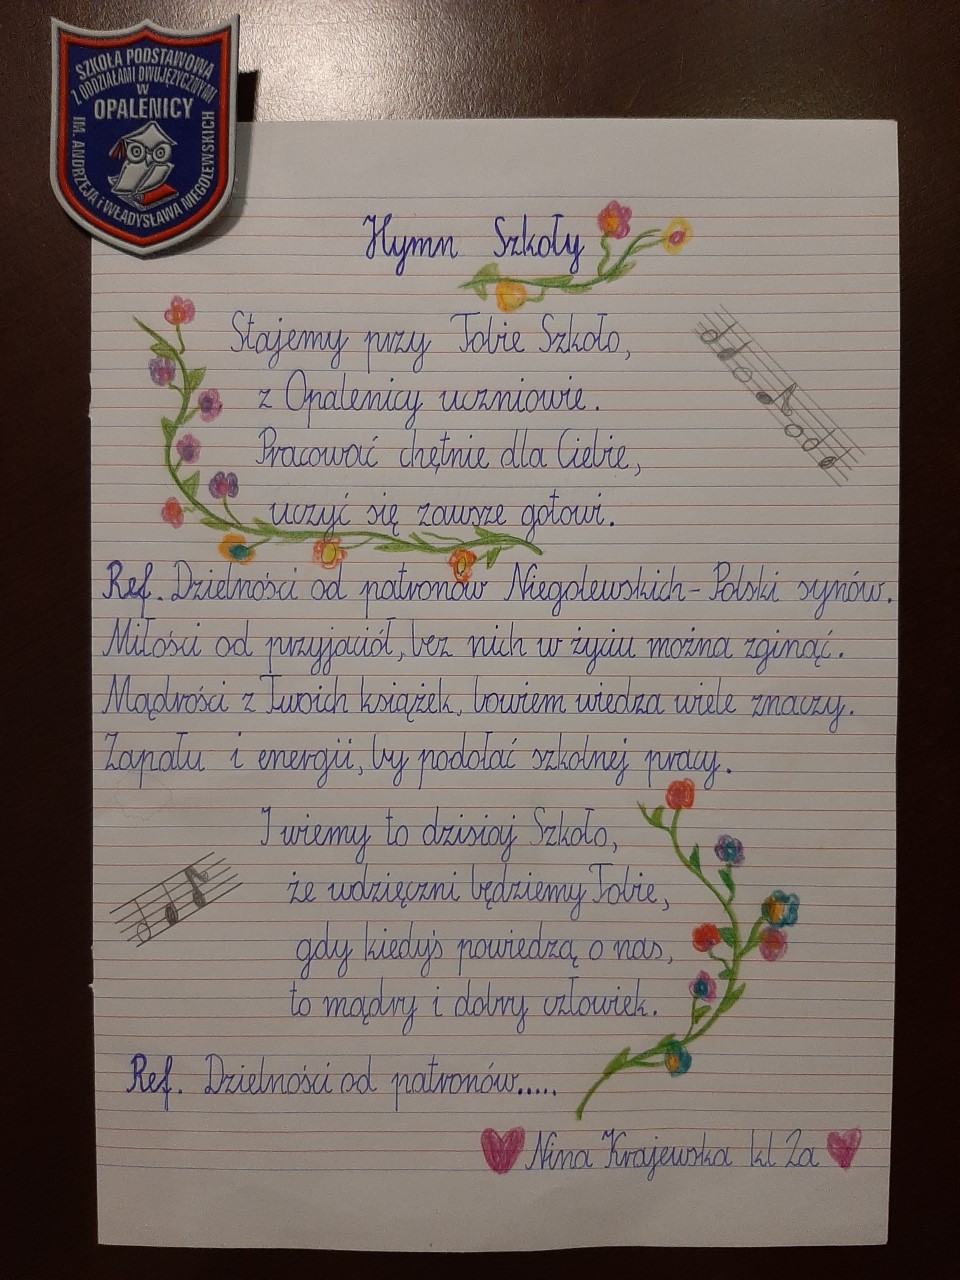 SZKOŁA PODSTAWOWA
Z ODDZIAŁAMI DWUJĘZYCZNYMI
W
OPALENICY
IM. ANDRZEJA i WŁADYSŁAWA NIEGOLEWSKICH
Hymn Szkoły
Stajemy przy Tobie Szkoło,
z Opalenicy uczniowie.
Pracować chętnie dla Ciebie,
uczyć się zawsze gotowi.
Ref. Dzielności od patronów Niegolewskich - Polski synów.
Miłości od przyjaciół, bez nich w życiu można zginąć.
Mądrości z Twoich książek, bowiem wiedza wiele znaczy.
Zapału i energii, by podołać szkolnej pracy.
I wiemy to dzisiaj Szkoło,
że wdzięczni będziemy Tobie,
gdy kiedyś powiedzą o nas,
to mądry i dobry człowiek.
Ref. Dzielności od patronów.....
Nina Krajewska kl 2a